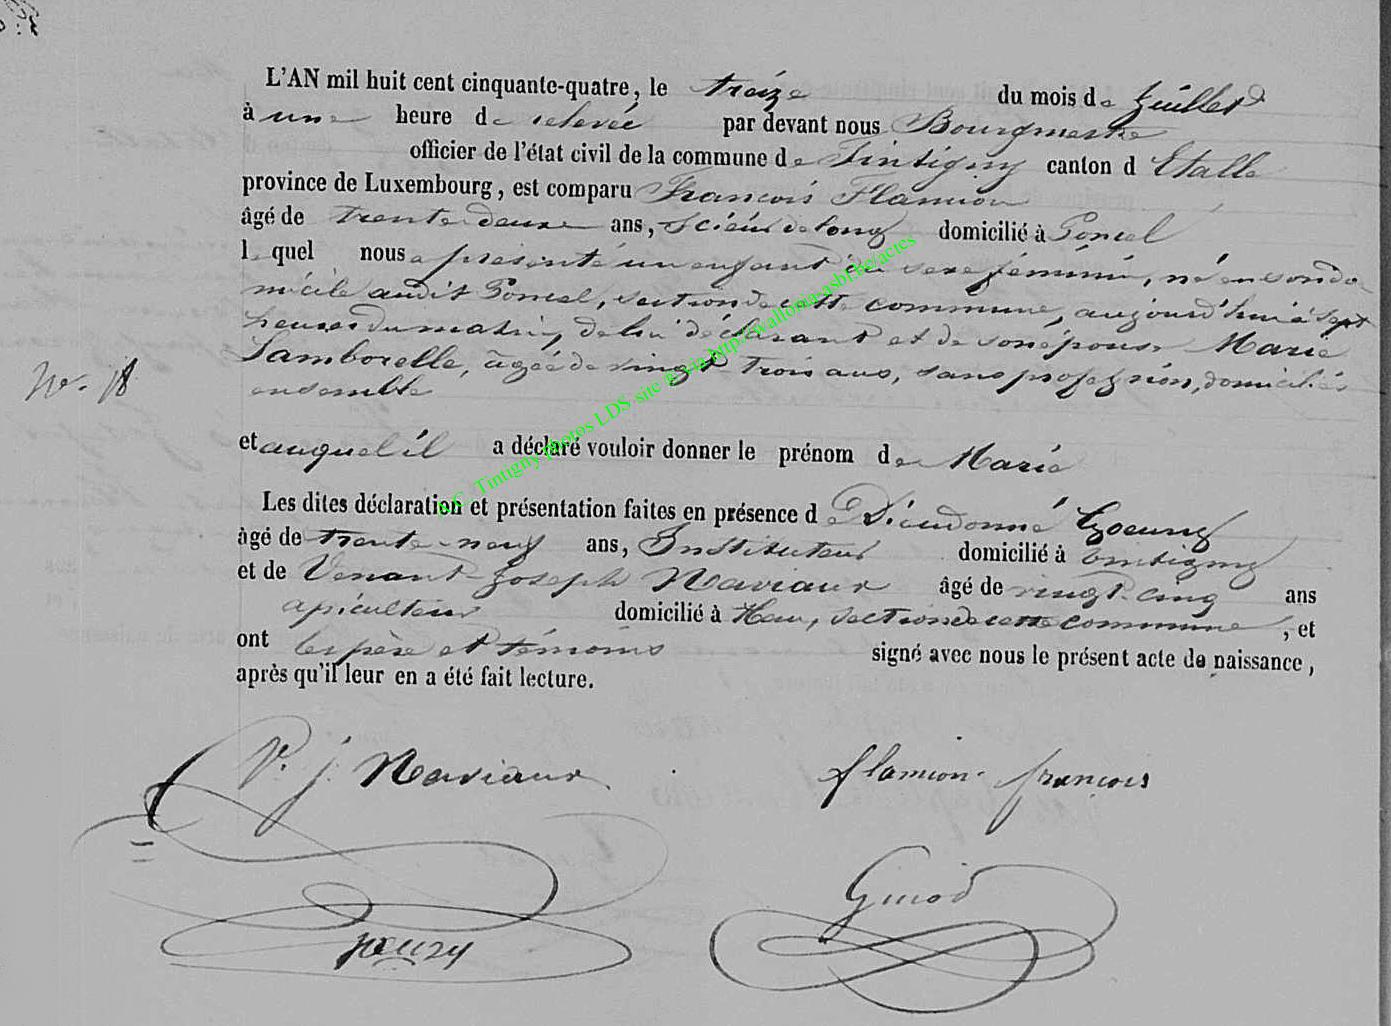 L'AN mil huit cent cinquante-quatre, le treize du mois de Juillet
à une heure de relevée par devant nous Bourgmestre
officier de l'état civil de la commune de Tintigny canton d Etalle
province de Luxembourg, est comparu François Flamion
âgé de trente deux ans, scieur de long domicilié à Poncel
l quel nous a présenté un enfant du sexe féminin, né en son do-
micile audit Poncel, section de cette commune, aujourd'hui à sept
heures du matin, de lui déclarant et de son épouse Marie
Lamborelle, âgée de vingt trois ans, sans profession, domiciliés
ensemble
No. 18
et auquel il a déclaré vouloir donner le prénom de Marie
Les dites déclaration et présentation faites en présence de Dieudonné
âgé de trente-neuf ans, Instituteur domicilié à Tintigny
et de Venant-Joseph Naviaux âgé de vingt cinq ans
apiculteur domicilié à Han, section de cette commune, et
ont les père et témoins signé avec nous le présent acte de naissance,
après qu'il leur en a été fait lecture.
V. J. Naviaux flamion françois
A.C. Tintigny photos LDS site via http://wallonia-asbl.be/actes